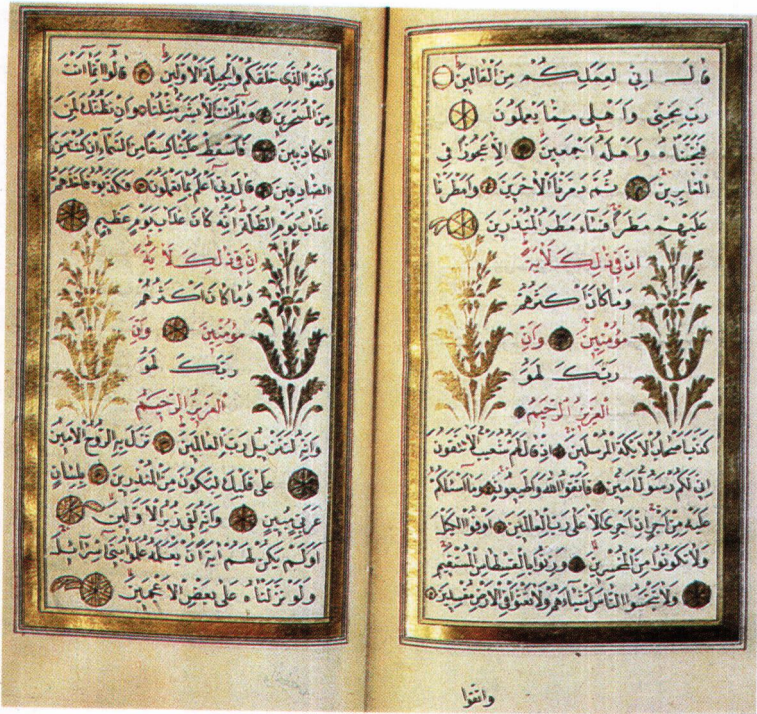 قَالَ اِنّي لِعَمَلِكُمْ مِنَ الْقَالينَ
رَبِّ نَجِّنى وَاَهْلى مِمَّا يَعْمَلُونَ
فَنَجَّيْنَاهُ وَاَهْلَهُ اَجْمَعينَ اِلَّا عَجُوزًا فِى
الْغَابِرينَ ثُمَّ دَمَّرْنَا الْاٰخَرينَ وَاَمْطَرْنَا
عَلَيْهِمْ مَطَرًا فَسَاءَ مَطَرُ الْمُنْذَرينَ
اِنَّ فى ذٰلِكَ لَاٰيَةً
وَمَا كَانَ اَكْثَرُهُمْ
مُؤْمِنينَ وَاِنَّ
رَبَّكَ لَهُوَ
الْعَزيزُ الرَّحيمُ
كَذَّبَ اَصْحَابُ الْاَيْكَةِ الْمُرْسَلينَ اِذْ قَالَ لَهُمْ شُعَيْبٌ اَلَا تَتَّقُونَ
اِنّى لَكُمْ رَسُولٌ اَمينٌ فَاتَّقُوا اللهَ وَاَطيعُونِ وَمَا اَسْئَلُكُمْ
عَلَيْهِ مِنْ اَجْرٍ اِنْ اَجْرِىَ اِلَّا عَلٰى رَبِّ الْعَالَمينَ اَوْفُوا الْكَيْلَ
وَلَا تَكُونُوا مِنَ الْمُخْسِرينَ وَزِنُوا بِالْقِسْطَاسِ الْمُسْتَقيمِ
وَلَا تَبْخَسُوا النَّاسَ اَشْيَاءَهُمْ وَلَا تَعْثَوْا فِى الْاَرْضِ مُفْسِدينَ
واتقوا
وَاتَّقُوا الَّذى خَلَقَكُمْ وَالْجِبِلَّةَ الْاَوَّلينَ قَالُوا اِنَّمَا اَنْتَ
مِنَ الْمُسَحَّرينَ وَمَا اَنْتَ اِلَّا بَشَرٌ مِثْلُنَا وَاِنْ نَظُنُّكَ لَمِنَ
الْكَاذِبينَ فَاَسْقِطْ عَلَيْنَا كِسَفًا مِنَ السَّمَاءِ اِنْ كُنْتَ مِنَ
الصَّادِقينَ قَالَ رَبّى اَعْلَمُ بِمَا تَعْمَلُونَ فَكَذَّبُوهُ فَاَخَذَهُمْ
عَذَابُ يَوْمِ الظُّلَّةِ اِنَّهُ كَانَ عَذَابَ يَوْمٍ عَظيمٍ
اِنَّ فى ذٰلِكَ لَاٰيَةً
وَمَا كَانَ اَكْثَرُهُمْ
مُؤْمِنينَ وَاِنَّ
رَبَّكَ لَهُوَ
الْعَزيزُ الرَّحيمُ
وَاِنَّهُ لَتَنْزيلُ رَبِّ الْعَالَمينَ نَزَلَ بِهِ الرُّوحُ الْاَمينُ
عَلٰى قَلْبِكَ لِتَكُونَ مِنَ الْمُنْذِرينَ بِلِسَانٍ
عَرَبِىٍّ مُبينٍ وَاِنَّهُ لَفى زُبُرِ الْاَوَّلينَ
اَوَلَمْ يَكُنْ لَهُمْ اٰيَةً اَنْ يَعْلَمَهُ عُلَمٰؤُا بَنى اِسْرَائلَ
وَلَوْ نَزَّلْنَاهُ عَلٰى بَعْضِ الْاَعْجَمينَ